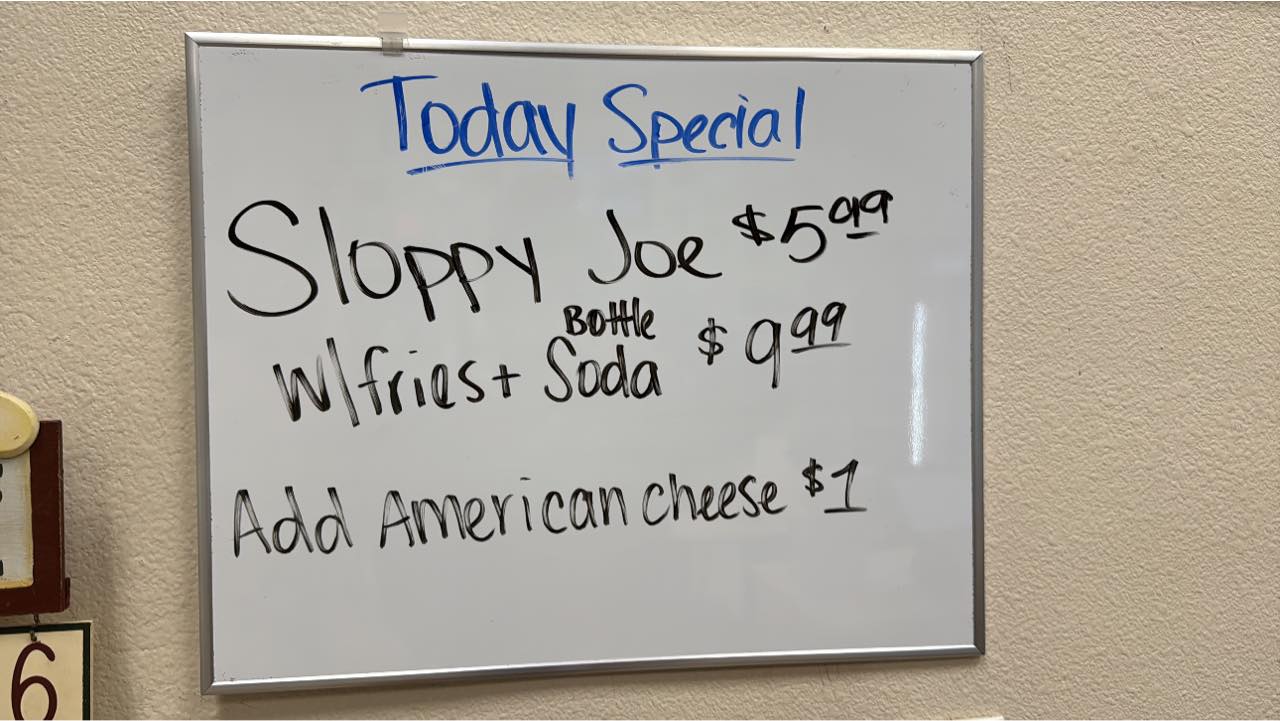 Today Special
Sloppy Joe $5.99
w/fries + Bottle Soda $9.99
Add American cheese $1
6